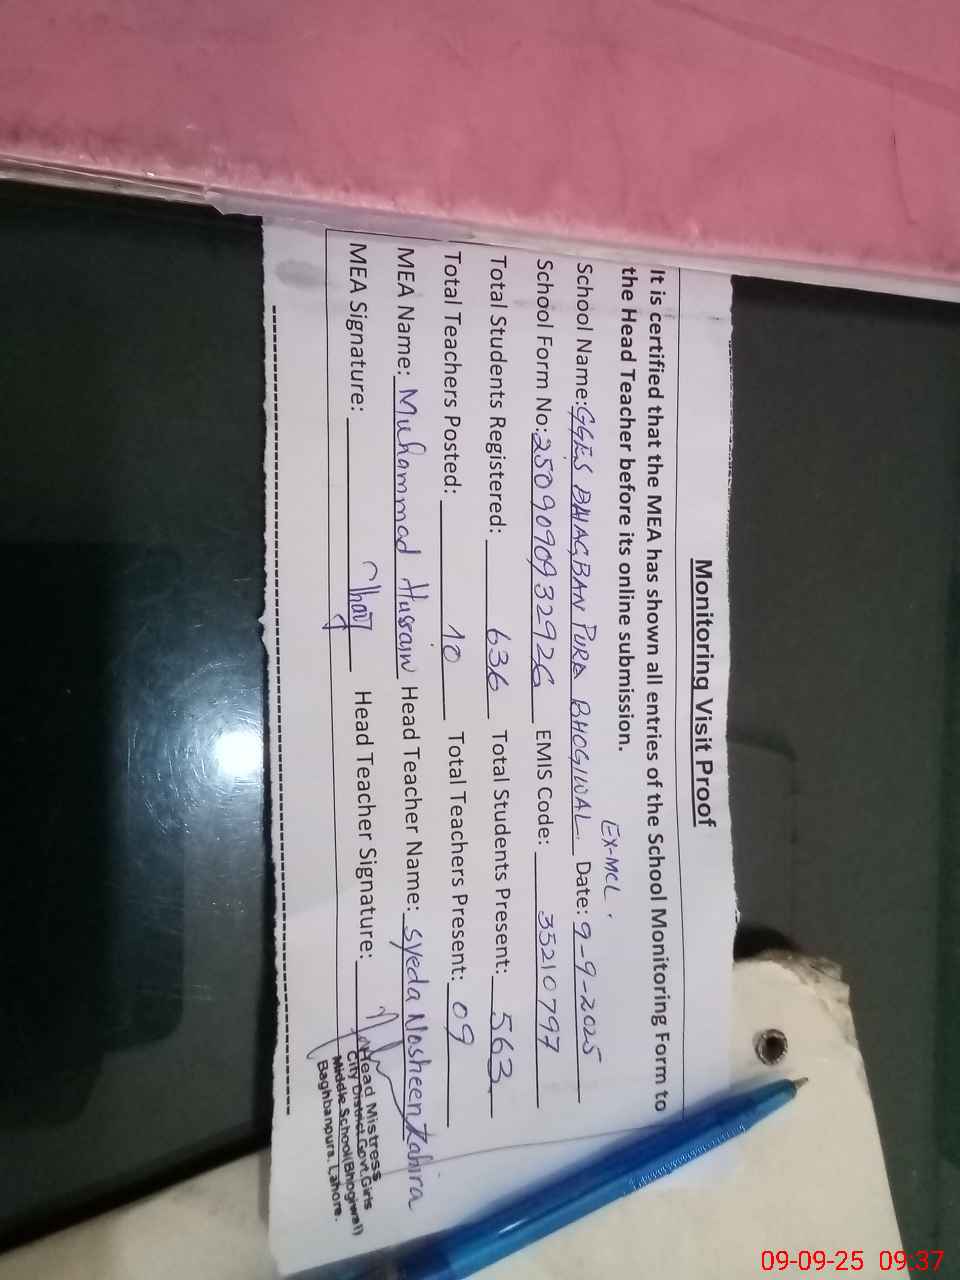 Monitoring Visit Proof
It is certified that the MEA has shown all entries of the School Monitoring Form to
the Head Teacher before its online submission.
EX-MCL.
School Name: GGES BHAGBAN PURA BHOGIWAL. Date: 9-9-2025
School Form No: 25090909932926 EMIS Code: 35210797
Total Students Registered: 636 Total Students Present: 563
Total Teachers Posted: 10 Total Teachers Present: 09
MEA Name: Muhammad Hussain Head Teacher Name: Syeda Nosheen Zahira
MEA Signature: Head Teacher Signature:
Head Mistress
City District Govt. Girls
Middle School (Bhogiwal)
Baghbanpura, Lahore.
09-09-25 09:37